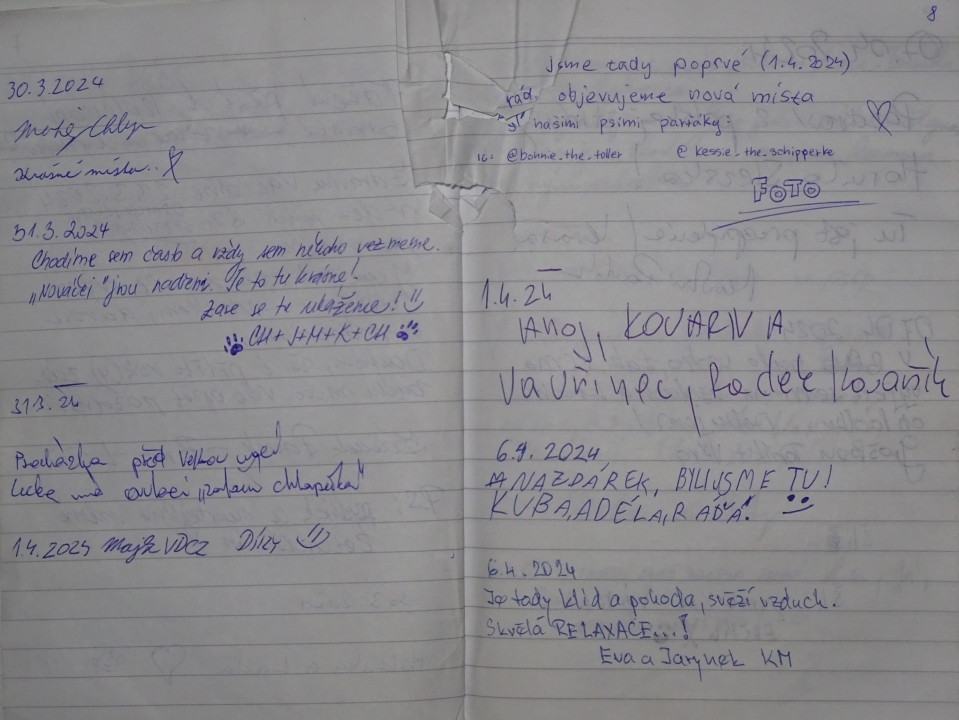 30.3.2024
Matěj
Krásné místa..
31.3.2024
Chodíme sem často a vždy sem někoho vezmeme.
„Nováčci" jsou nadšeni. Je to tu krásné!
Zase se tu ukážeme!
CH+J+H+K+CH
31.3.24
Procházka před Velkou
Lucka má
1.4.2024 Majk VDCZ Díky
8
jsme tady poprvé (1.4.2024)
rád. objevujeme nová místa
našimi psími parťáky:
IG: @bonnie_the_toller @kessie_the_schipperke
FOTO
1.4.24
AHOJ, KOVARIV A
Vavřinec, Radek Kovařík
6.4.2024
NAZDÁREK, BYLI JSME TU!
KUBA, ADÉLA,
6.4.2024
Je tady klid a pohoda, svěží vzduch.
Skvělá RELAXACE...!
Eva a Jarynek KM